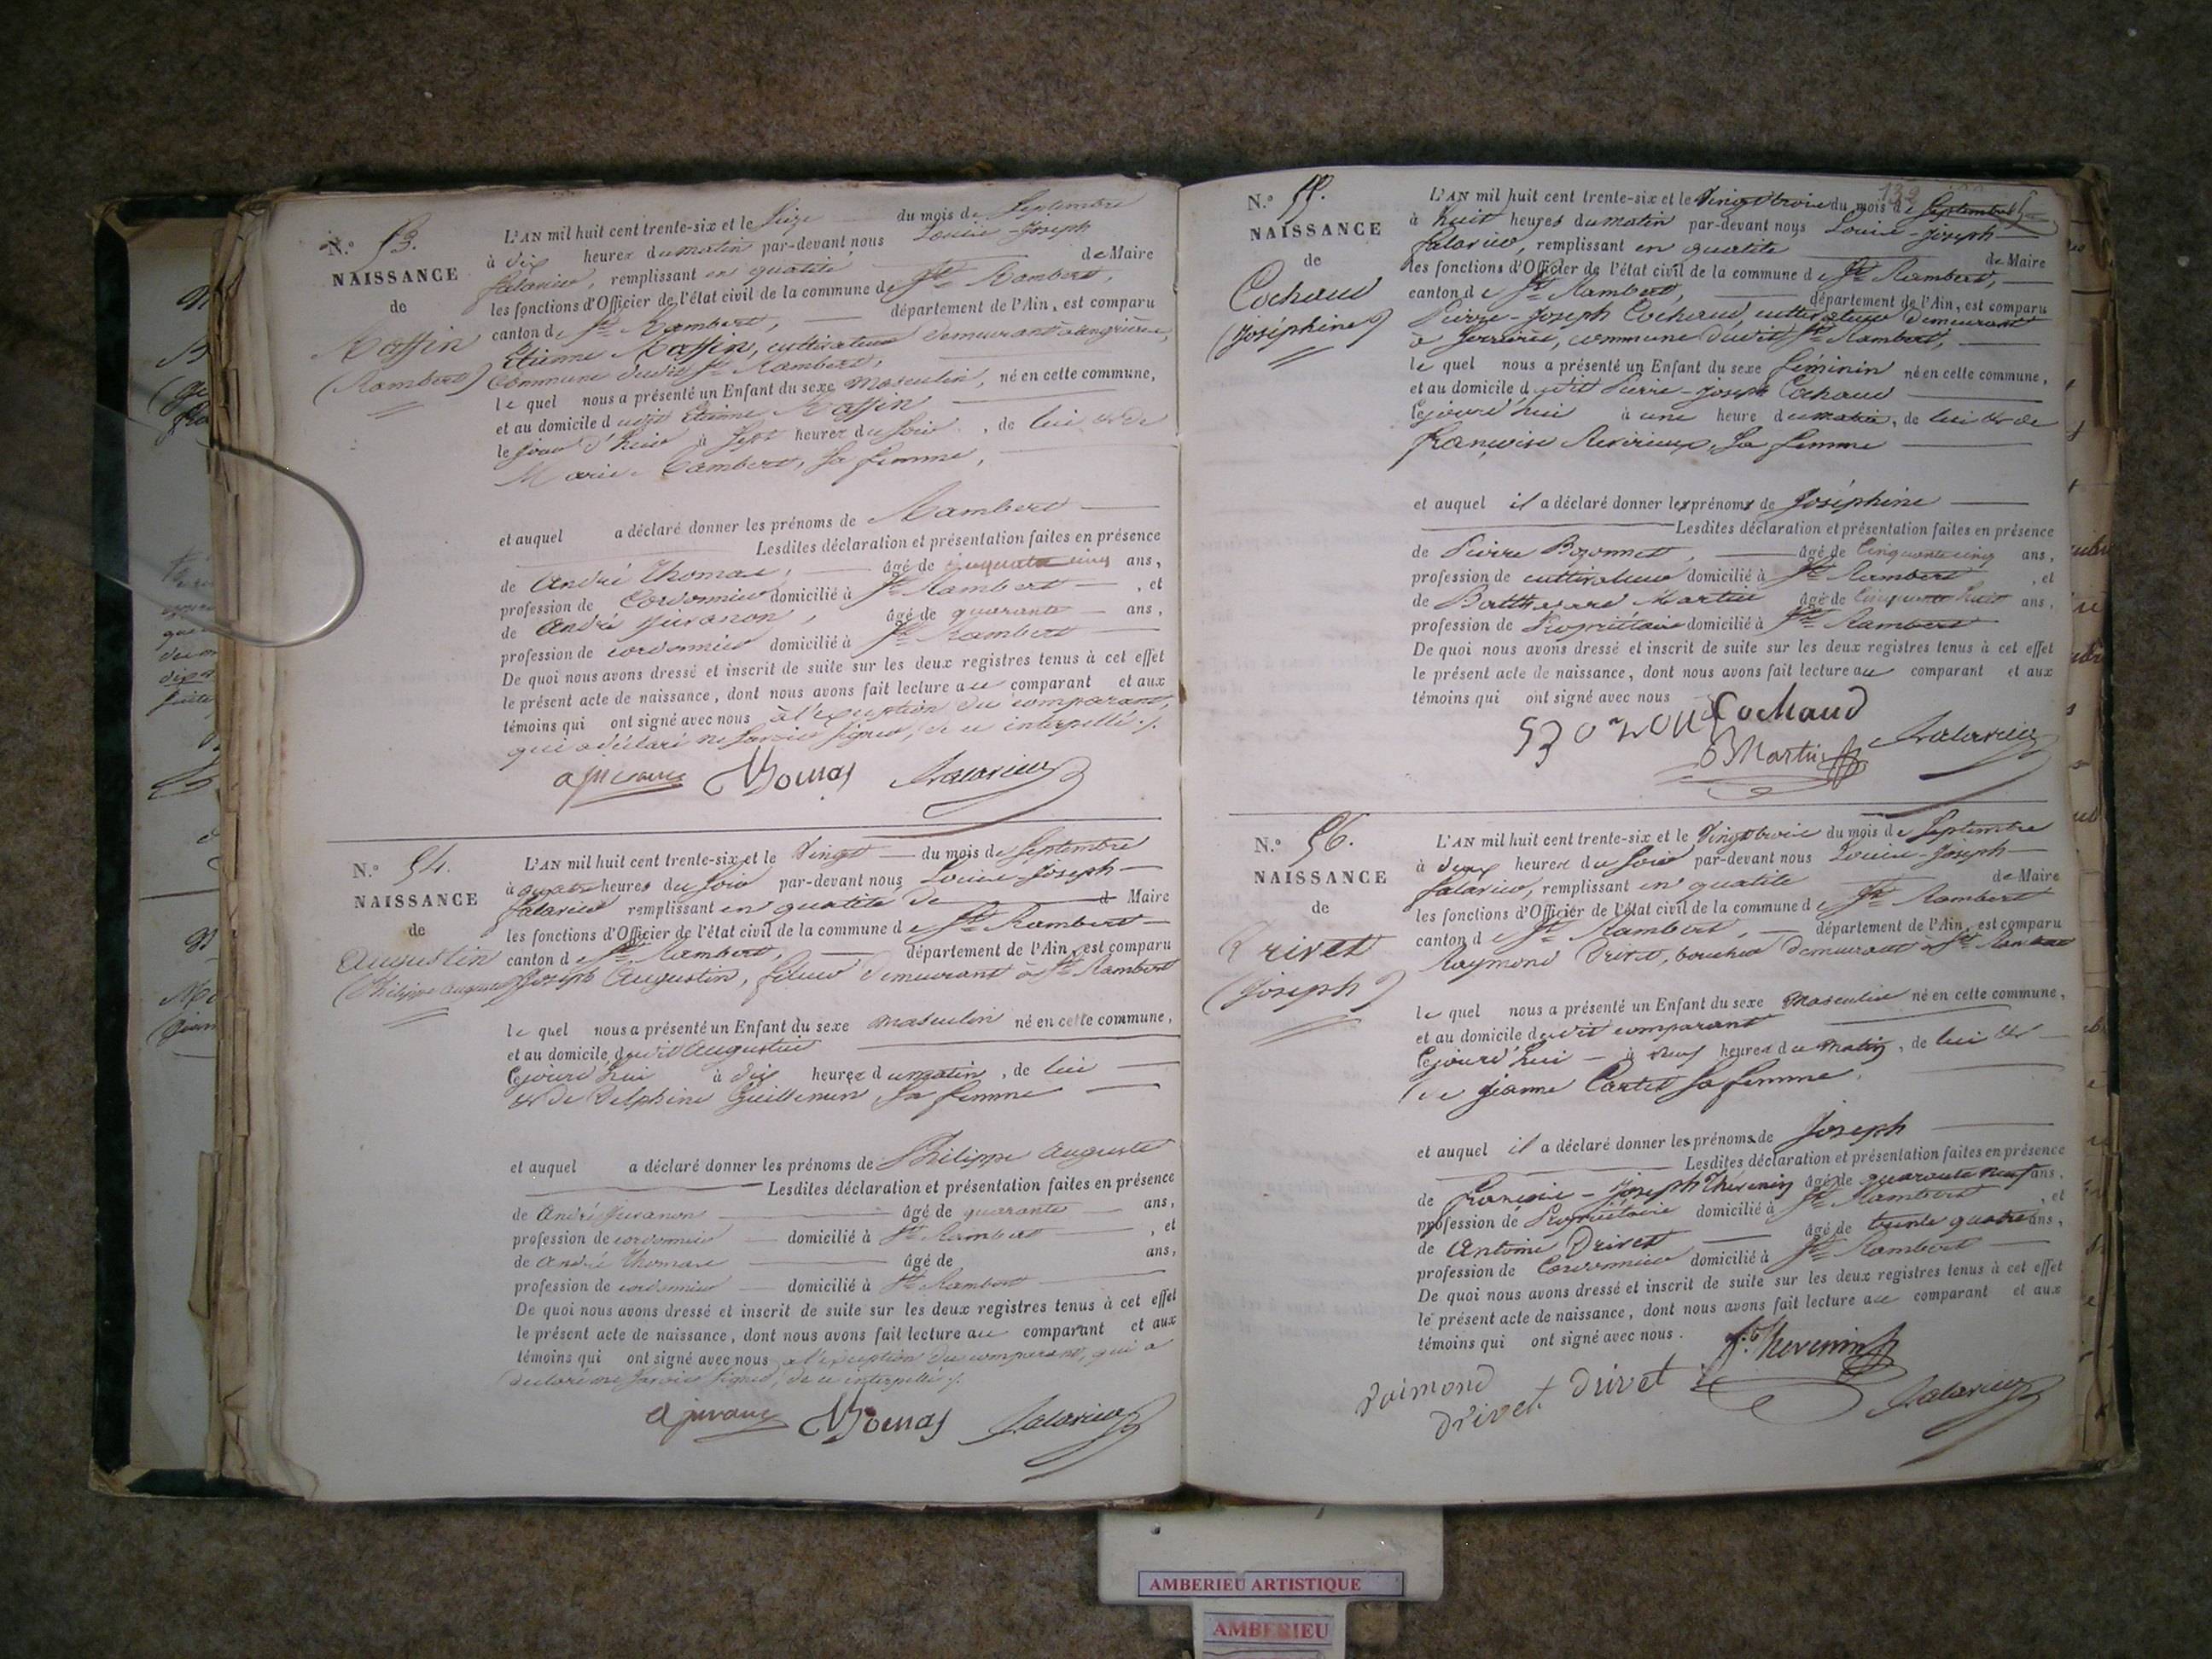 N.º 53.
NAISSANCE
de
Maffin
(Rambert)
L'AN mil huit cent trente-six et le Seize du mois de Septembre
à dix heures du matin par-devant nous Louis-Joseph
Salarieu, remplissant en qualité de Maire
les fonctions d'Officier de l'état civil de la commune de St. Rambert,
canton de St. Rambert, département de l'Ain, est comparu
Etienne Maffin, cultivateur demeurant à
Commune dudit St. Rambert,
le quel nous a présenté un Enfant du sexe masculin, né en cette commune,
et au domicile dudit Etienne Maffin
le jour d'hier à Sept heures du Soir, de lui et de
Marie Lambert, sa femme,
et auquel a déclaré donner les prénoms de Rambert
Lesdites déclaration et présentation faites en présence
de André Thomas, âgé de cinquante cinq ans,
profession de Cordonnier domicilié à St. Rambert, et
de André Juvanon, âgé de quarante ans,
profession de cordonnier domicilié à St. Rambert
De quoi nous avons dressé et inscrit de suite sur les deux registres tenus à cet effet
le présent acte de naissance, dont nous avons fait lecture au comparant et aux
témoins qui ont signé avec nous à l'exception du comparant,
qui a déclaré ne savoir signer, de ce interpellé ./.
Thomas Salarieu
N.º 54.
NAISSANCE
de
Augustin
(Philippe Auguste)
L'AN mil huit cent trente-six et le Vingt du mois de Septembre
à quatre heures du soir par-devant nous Louis-Joseph
Salarieu remplissant en qualité de Maire
les fonctions d'Officier de l'état civil de la commune de St. Rambert
canton de St. Rambert, département de l'Ain, est comparu
Joseph Augustin, fileur demeurant à St. Rambert
le quel nous a présenté un Enfant du sexe masculin né en cette commune,
et au domicile dudit Augustin
Cejourd'hui à dix heures du matin, de lui
et de Delphine Guillemin, sa femme
et auquel a déclaré donner les prénoms de Philippe Auguste
Lesdites déclaration et présentation faites en présence
de André Juvanon âgé de quarante ans,
profession de cordonnier domicilié à St. Rambert, et
de André Thomas âgé de ans,
profession de cordonnier domicilié à St. Rambert
De quoi nous avons dressé et inscrit de suite sur les deux registres tenus à cet effet
le présent acte de naissance, dont nous avons fait lecture au comparant et aux
témoins qui ont signé avec nous à l'exception du comparant, qui a
déclaré ne savoir signer, de ce interpellé ./.
Thomas Salarieu
N.º 55.
NAISSANCE
de
Cochaud
(Joséphine)
L'AN mil huit cent trente-six et le Vingt trois du mois de Septembre
à huit heures du matin par-devant nous Louis-Joseph
Salarieu, remplissant en qualité de Maire
les fonctions d'Officier de l'état civil de la commune de St. Rambert,
canton de St. Rambert, département de l'Ain, est comparu
Pierre-Joseph Cochaud, cultivateur demeurant
à Serrières, commune dudit St. Rambert,
le quel nous a présenté un Enfant du sexe féminin né en cette commune,
et au domicile dudit Pierre-Joseph Cochaud
Cejourd'hui à une heure du matin, de lui et de
Françoise sa femme
et auquel il a déclaré donner les prénoms de Joséphine
Lesdites déclaration et présentation faites en présence
de Pierre Bozonnet, âgé de Cinquante cinq ans,
profession de cultivateur domicilié à St. Rambert, et
de Balthazard Martin âgé de Cinquante huit ans,
profession de Propriétaire domicilié à St. Rambert
De quoi nous avons dressé et inscrit de suite sur les deux registres tenus à cet effet
le présent acte de naissance, dont nous avons fait lecture au comparant et aux
témoins qui ont signé avec nous
Cochaud
B Martin Salarieu
N.º 56.
NAISSANCE
de
Drivet
(Joseph)
L'AN mil huit cent trente-six et le Vingt trois du mois de Septembre
à deux heures du soir par-devant nous Louis-Joseph
Salarieu, remplissant en qualité de Maire
les fonctions d'Officier de l'état civil de la commune de St. Rambert
canton de St. Rambert, département de l'Ain, est comparu
Raymond Drivet, boucher demeurant à St. Rambert
le quel nous a présenté un Enfant du sexe masculin né en cette commune,
et au domicile dudit comparant
Cejourd'hui à neuf heures du matin, de lui et
de Jeanne Cartet sa femme,
et auquel il a déclaré donner les prénoms de Joseph
Lesdites déclaration et présentation faites en présence
de François-Joseph Thévenin âgé de quarante neuf ans,
profession de Propriétaire domicilié à St. Rambert, et
de Antoine Drivet âgé de trente quatre ans,
profession de Cordonnier domicilié à St. Rambert
De quoi nous avons dressé et inscrit de suite sur les deux registres tenus à cet effet
le présent acte de naissance, dont nous avons fait lecture au comparant et aux
témoins qui ont signé avec nous.
Thevenin
raimond
drivet drivet Salarieu
AMBERIEU ARTISTIQUE
AMBERIEU